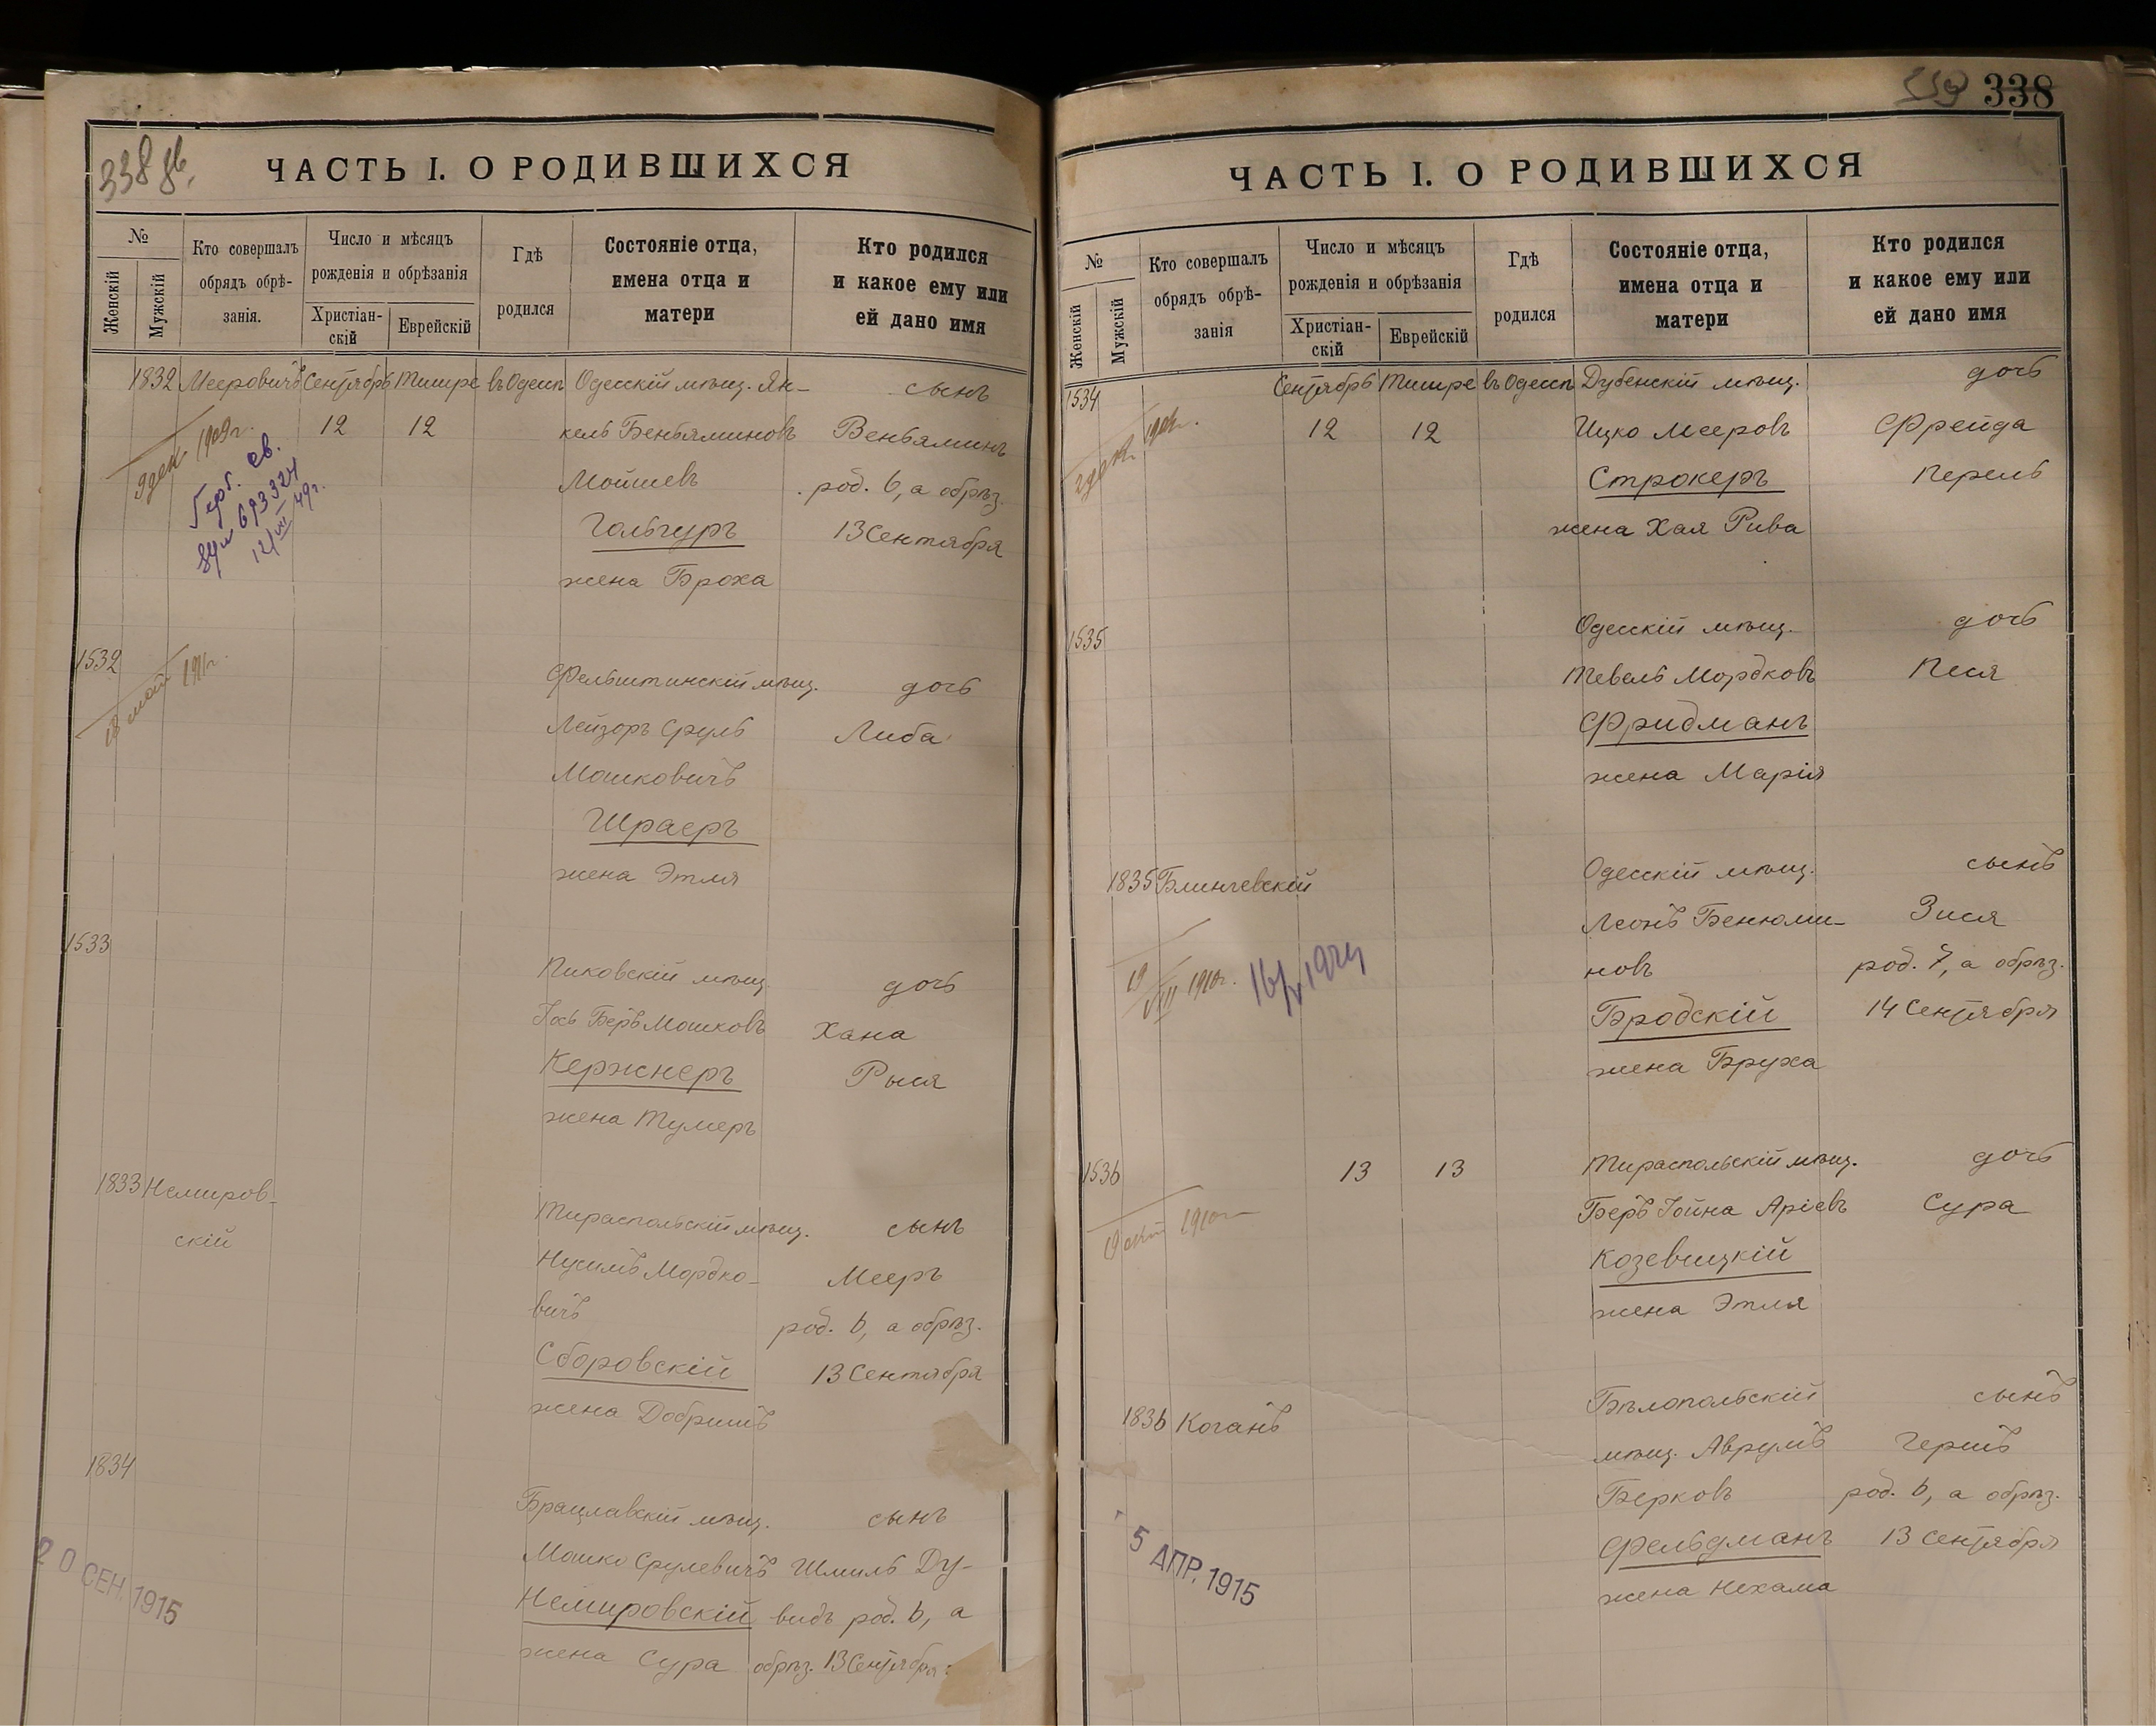 338 об.
ЧАСТЬ I. О РОДИВШИХСЯ
№
Женскій
Мужскій
Кто совершалъ
обрядъ обрѣ-
занія.
Число и мѣсяцъ
рожденія и обрѣзанія
Христіан-
скій
Еврейскій
Гдѣ
родился
Состояніе отца,
имена отца и
матери
Кто родился
и какое ему или
ей дано имя
1832 Мееровичъ Сентябрь Тишре въ Одессѣ Одесскій мѣщ. Ян- сынъ
12 12 кель Беньяминовъ Веньяминъ
9 дек. 1909 г.
Мойшевъ род. 6, а обрѣз.
Герб. св.
693324
12/VII 49 г.
Гольгуръ 13 Сентября
жена Броха
1532 Фельштинскій мѣщ. дочь
18 май 1911 г.
Лейзоръ Сруль Либа
Мошковичъ
Шраеръ
жена Этля
1533 Пиковскій мѣщ. дочь
Іось Беръ Мошковъ Хана
Кержнеръ Рыся
жена Тумеръ
1833 Немиров-
скій
Тираспольскій мѣщ. сынъ
Нусимъ Мордко- Мееръ
вичъ род. 6, а обрѣз.
Сборовскій 13 Сентября
жена Добришъ
1834 Брацлавскій мѣщ. сынъ
Мошко Срулевичъ Шмиль Ду-
Немировскій видъ род. 6, а
жена Сура обрѣз. 13 Сентября
20 СЕН. 1915
338
ЧАСТЬ I. О РОДИВШИХСЯ
№
Женскій
Мужскій
Кто совершалъ
обрядъ обрѣ-
занія
Число и мѣсяцъ
рожденія и обрѣзанія
Христіан-
скій
Еврейскій
Гдѣ
родился
Состояніе отца,
имена отца и
матери
Кто родился
и какое ему или
ей дано имя
1534 Сентябрь Тишре въ Одессѣ Дубенскій мѣщ. дочь
12 12 Ицко Мееровъ Фрейда
2 дек.
Строкеръ Перель
жена Хая Рива
1535 Одесскій мѣщ. дочь
Тевель Мордковъ Песя
Фридманъ
жена Марія
1835 Блинчевскій Одесскій мѣщ. сынъ
Леонъ Бенюми- Зися
19/VIII 1910 г. 16/V 1924
новъ род. 7, а обрѣз.
Бродскій 14 Сентября
жена Бруха
1536 13 13 Тираспольскій мѣщ. дочь
Беръ Іойна Аріевъ Сура
1910
Козевицкій
жена Этля
1836 Коганъ Бѣлопольскій сынъ
мѣщ. Аврумъ Гершъ
Берковъ род. 6, а обрѣз.
Фельдманъ 13 Сентября
жена Нехама
5 АПР. 1915